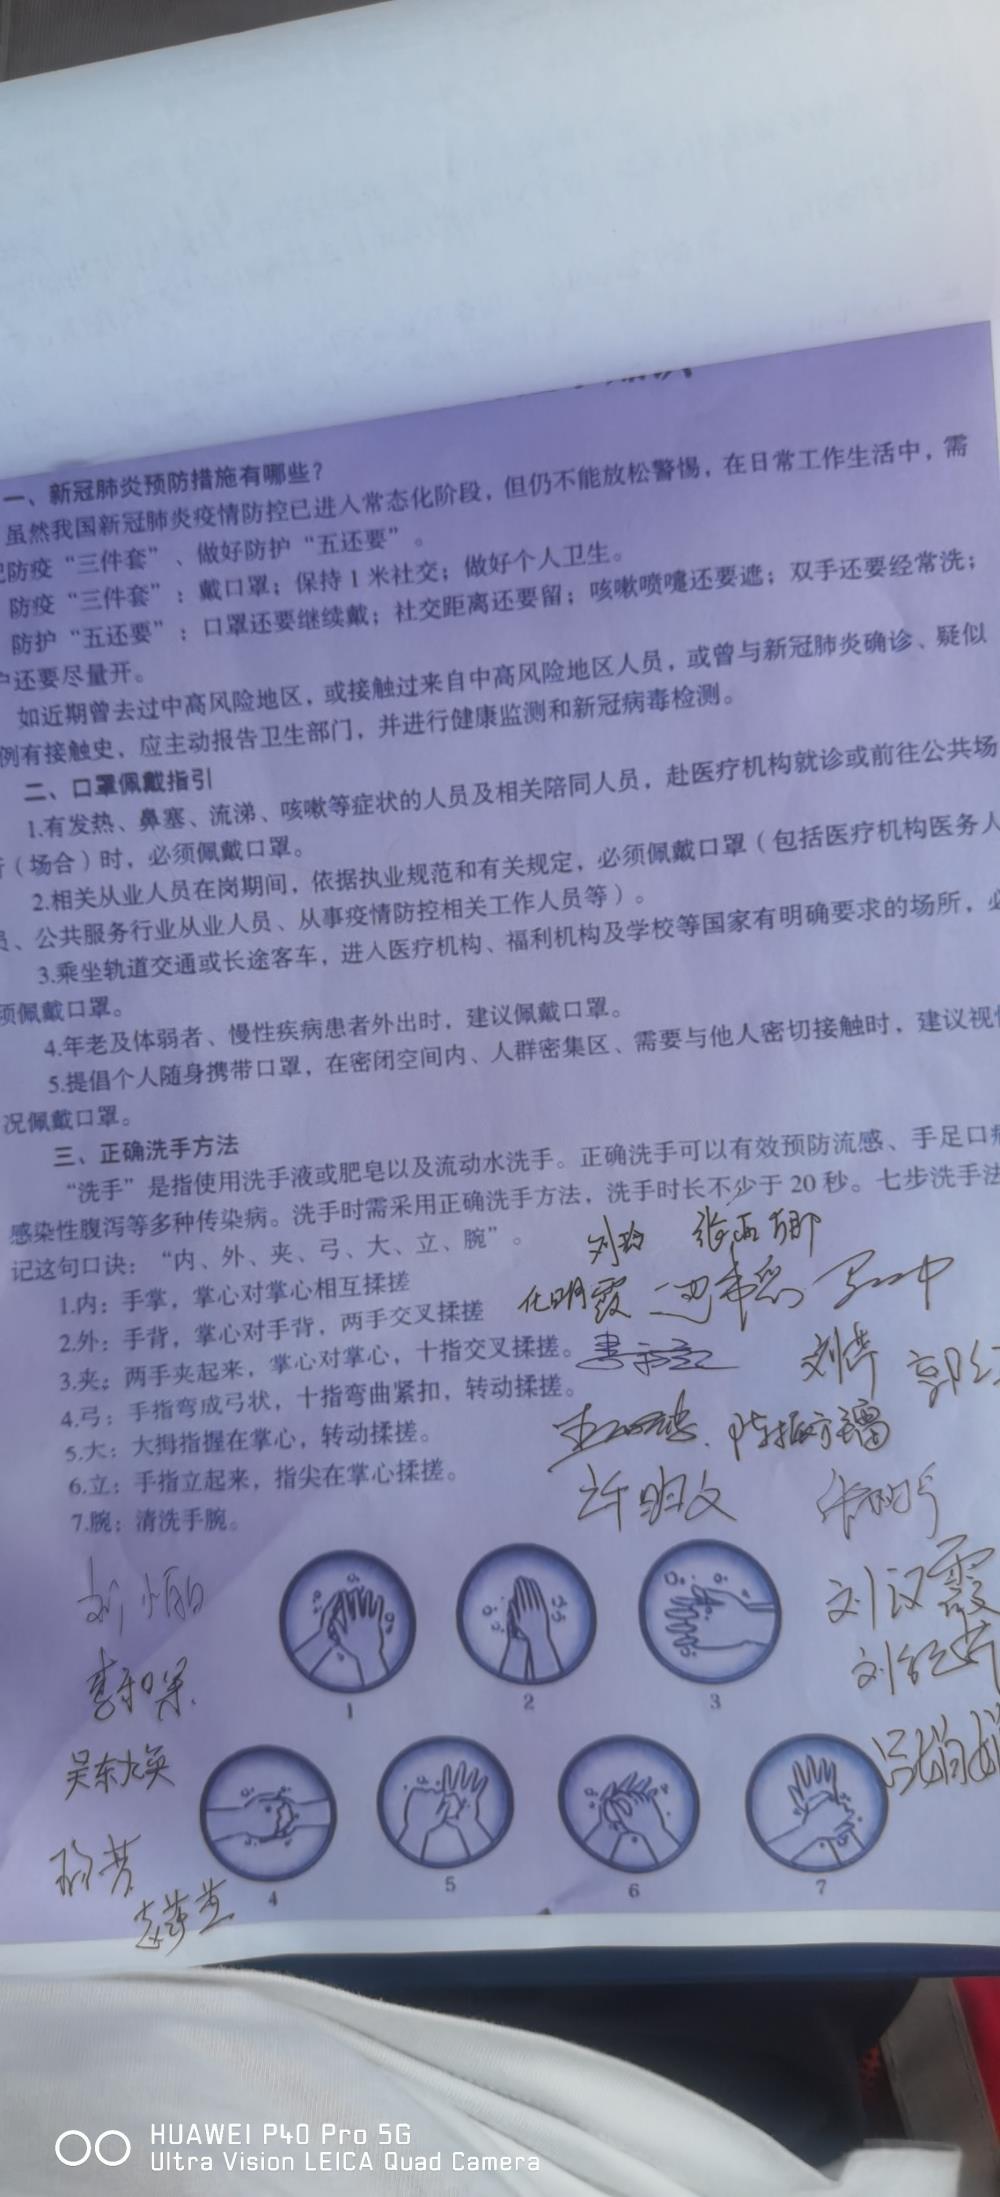 一、新冠肺炎预防措施有哪些？
虽然我国新冠肺炎疫情防控已进入常态化阶段，但仍不能放松警惕，在日常工作生活中，需
防疫“三件套”、做好防护“五还要”。
防疫“三件套”：戴口罩；保持1米社交；做好个人卫生。
防护“五还要”：口罩还要继续戴；社交距离还要留；咳嗽喷嚏还要遮；双手还要经常洗；
还要尽量开。
如近期曾去过中高风险地区，或接触过来自中高风险地区人员，或曾与新冠肺炎确诊、疑似
例有接触史，应主动报告卫生部门，并进行健康监测和新冠病毒检测。
二、口罩佩戴指引
1.有发热、鼻塞、流涕、咳嗽等症状的人员及相关陪同人员，赴医疗机构就诊或前往公共场
（场合）时，必须佩戴口罩。
2.相关从业人员在岗期间，依据执业规范和有关规定，必须佩戴口罩（包括医疗机构医务人
员、公共服务行业从业人员、从事疫情防控相关工作人员等）。
3.乘坐轨道交通或长途客车，进入医疗机构、福利机构及学校等国家有明确要求的场所，必
须佩戴口罩。
4.年老及体弱者、慢性疾病患者外出时，建议佩戴口罩。
5.提倡个人随身携带口罩，在密闭空间内、人群密集区、需要与他人密切接触时，建议视情
况佩戴口罩。
三、正确洗手方法
“洗手”是指使用洗手液或肥皂以及流动水洗手。正确洗手可以有效预防流感、手足口病
感染性腹泻等多种传染病。洗手时需采用正确洗手方法，洗手时长不少于20秒。七步洗手法
记这句口诀：“内、外、夹、弓、大、立、腕”。
刘玲
1.内：手掌，掌心对掌心相互揉搓
2.外：手背，掌心对手背，两手交叉揉搓
3.夹：两手夹起来，掌心对掌心，十指交叉揉搓。
刘芹
4.弓：手指弯成弓状，十指弯曲紧扣，转动揉搓。
5.大：大拇指握在掌心，转动揉搓。
6.立：手指立起来，指尖在掌心揉搓。
许明文
7.腕：清洗手腕。
刘汉霞
1
2
3
吴东焕
4
5
6
7
HUAWEI P40 Pro 5G
Ultra Vision LEICA Quad Camera